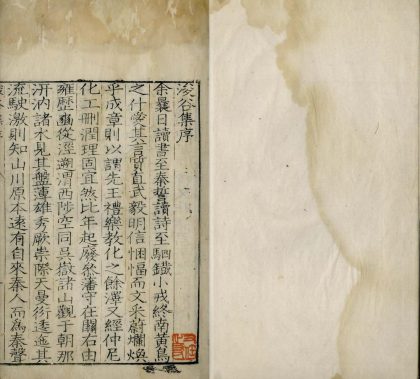 浚谷集序
余曩日讀書至秦誓讀詩至駟鐵小戎終南黃鳥
之什愛其言質直武毅明信悃愊而文采蔚爛煥
乎成章則以謂先王禮樂敎化之餘澤又經仲尼
化工刪潤理固宜然比年起廢忝藩守在關右由
雍歷豳從涇遡渭西陟空同吳嶽諸山觀于朝那
汧汭諸水見其盤薄雄秀厥崇際天曼衍逶迤其
流駛激則知山川原本遠有自來秦人而為秦聲